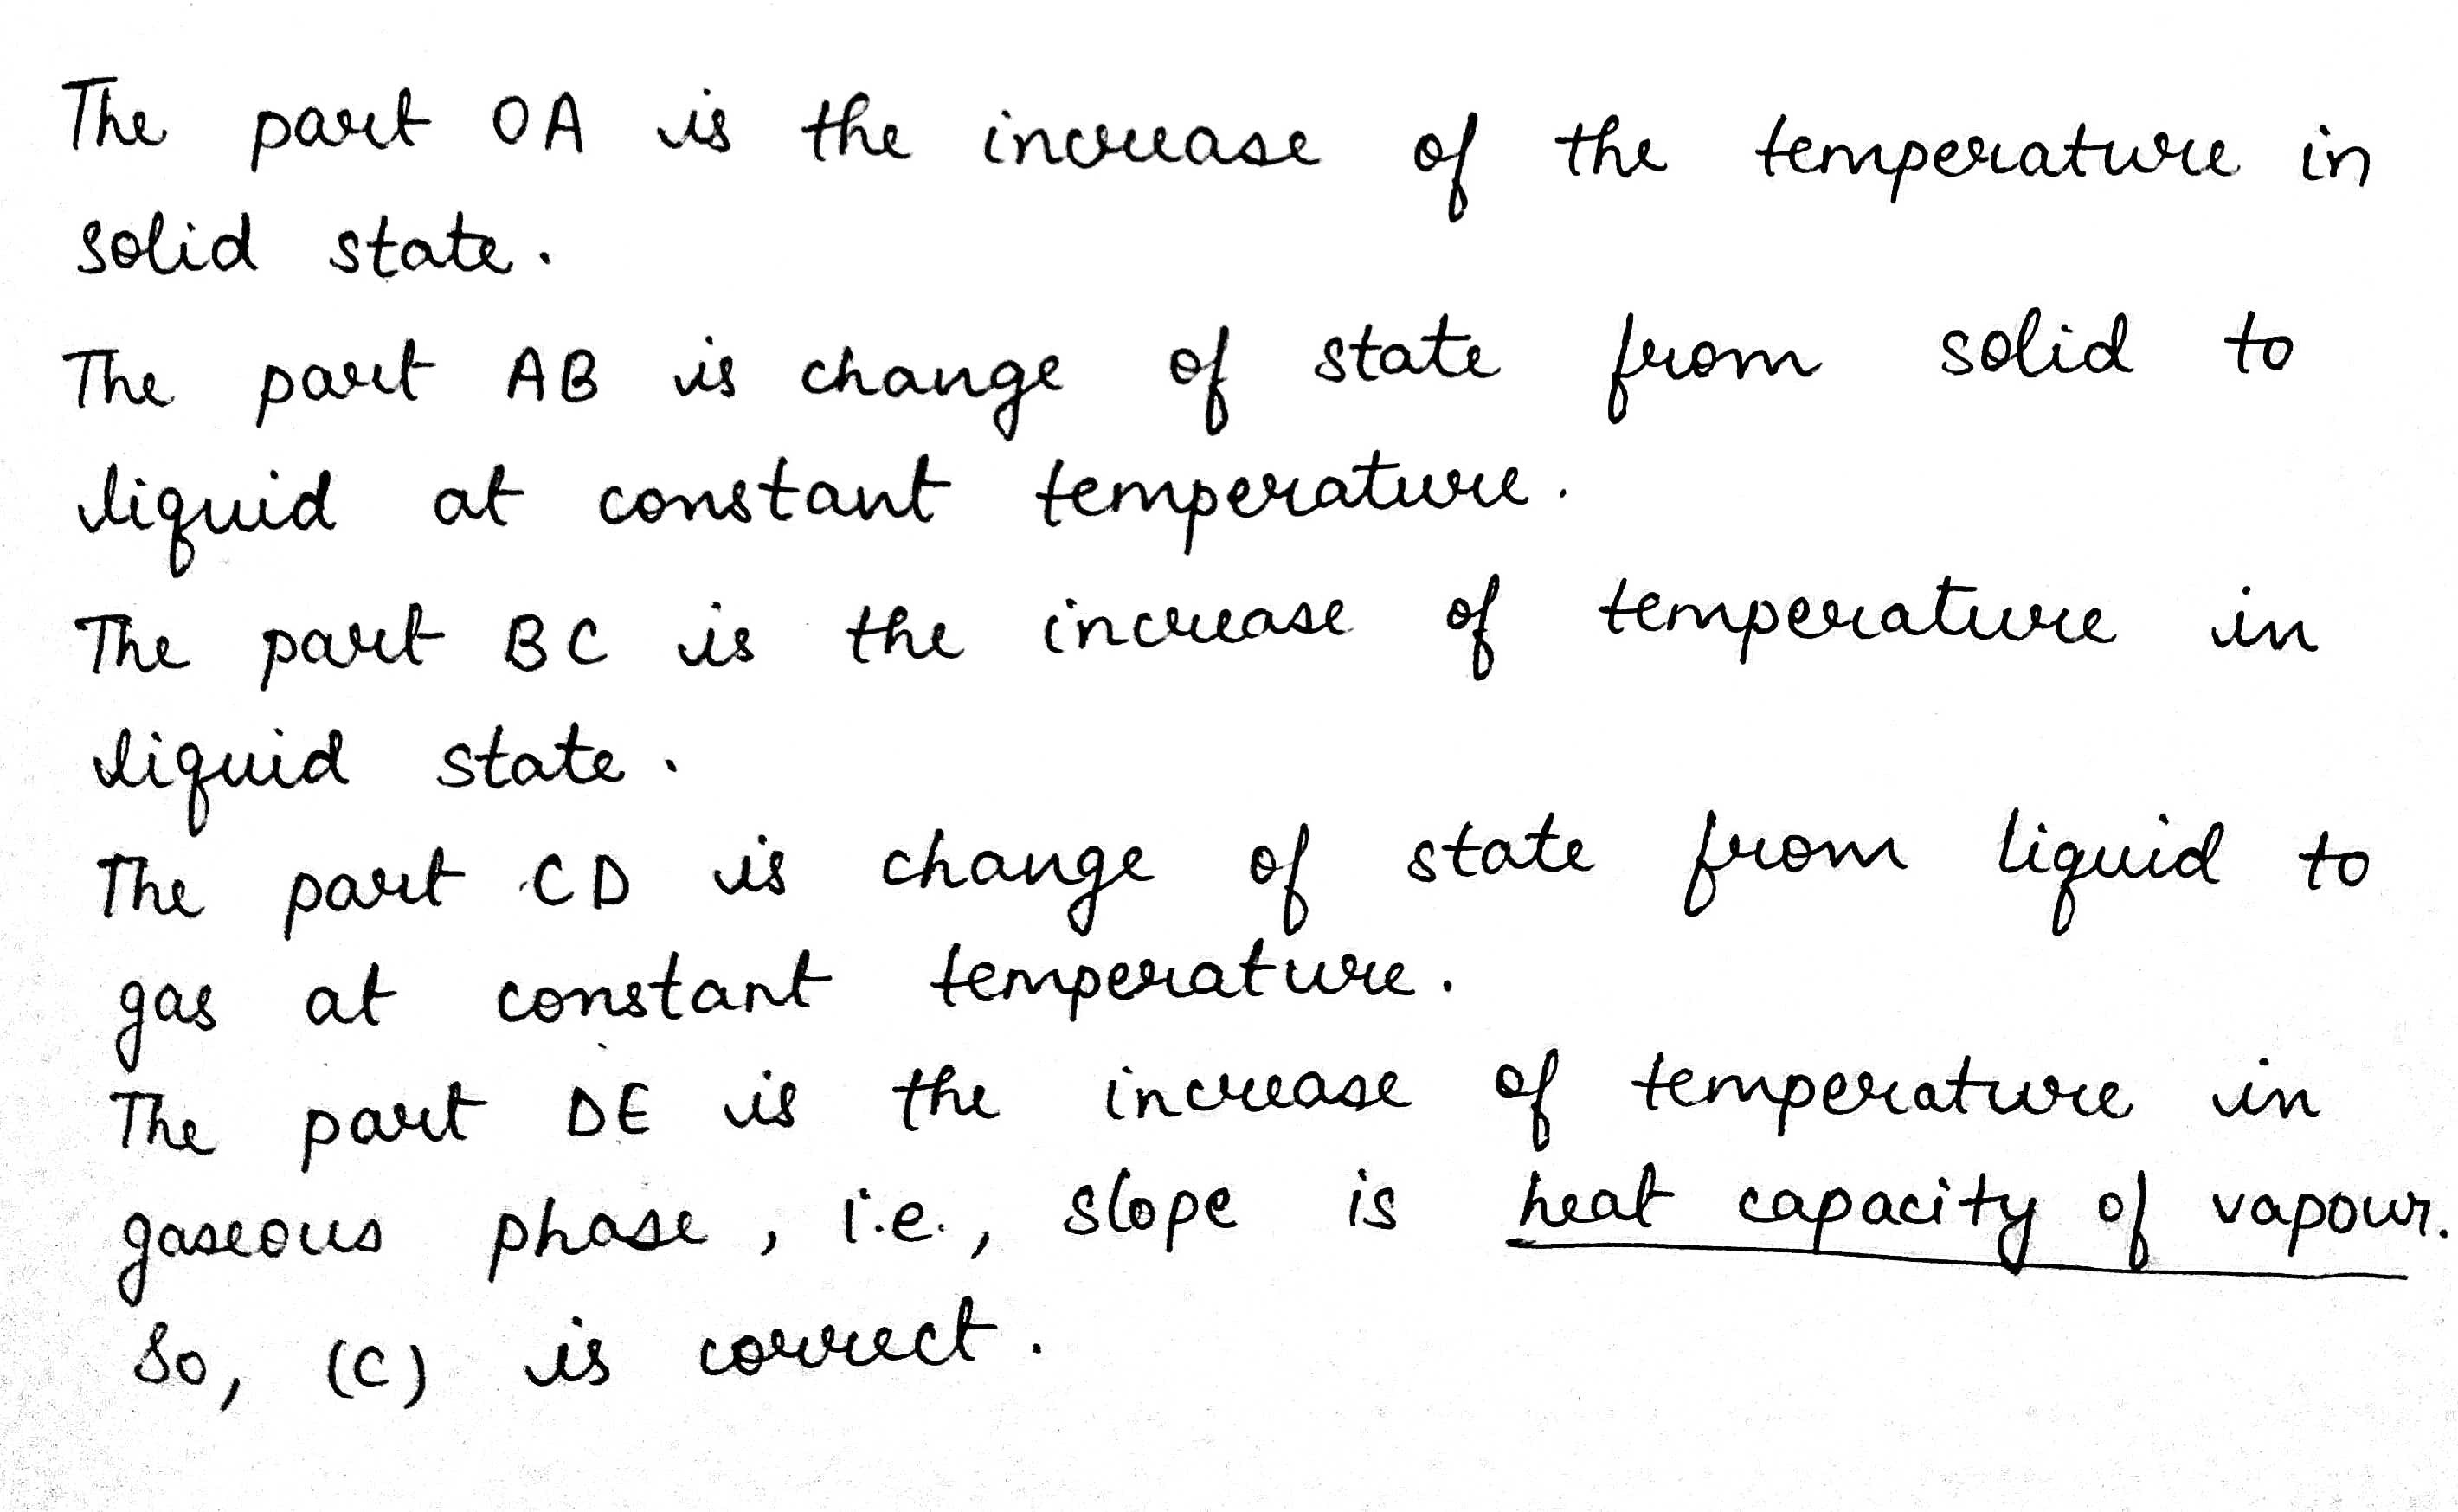 The part OA is the increase of the temperature in
solid state.
The part AB is change of state from solid to
liquid at constant temperature.
The part BC is the increase of temperature in
liquid state.
The part CD is change of state from liquid to
gas at constant temperature.
The part DE is the increase of temperature in
gaseous phase, i.e., slope is heat capacity of vapour.
So, (C) is correct.